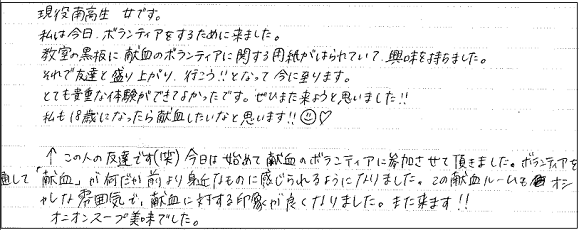 現役高生 女です。
私は今日、ボランティアをするために来ました。
教室の黒板に献血のボランティアに関する用紙がはられていて、興味を持ちました。
それで友達と盛り上がり、行こう!!となって今に至ります。
とても貴重な体験ができてよかったです。ぜひまた来ようと思いました!!
私も18歳になったら献血したいなと思います!!☺♡
↑この人の友達です(笑) 今日は始めて献血のボランティアに参加させて頂きました。ボランティアを
通して「献血」が何だか前より身近なものに感じられるようになりました。この献血ルームもオシ
ャレな雰囲気で、献血に対する印象が良くなりました。また来ます!!
オニオンスープ美味でした。